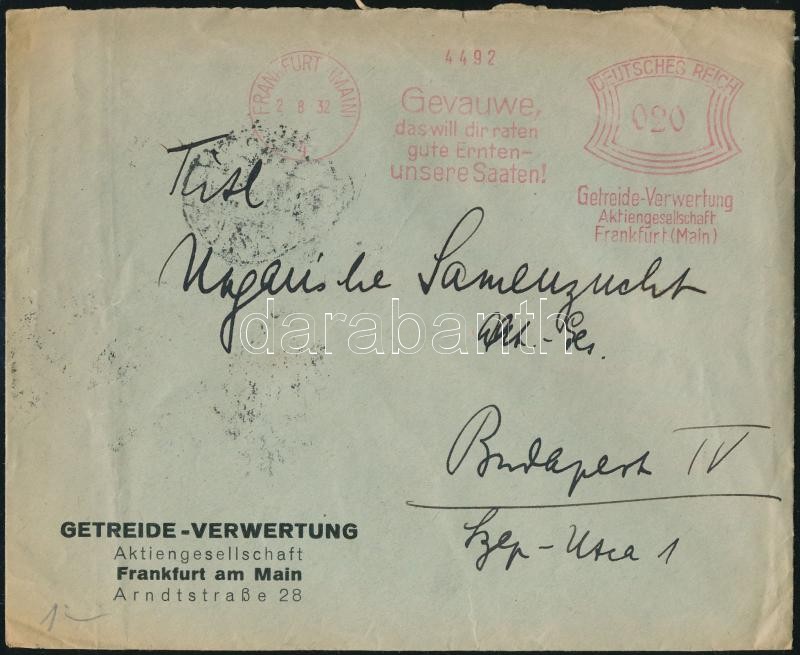 FRANKFURT (MAIN)
2 8 32
4492
Gevauwe,
das will dir raten
gute Ernten—
unsere Saaten!
DEUTSCHES REICH
020
Getreide-Verwertung
Aktiengesellschaft
Frankfurt (Main)
Titl.
Ungarische Samenzucht
Akt.-Ges.
darabanth
Budapest IV
Szep-Utca 1
GETREIDE-VERWERTUNG
Aktiengesellschaft
Frankfurt am Main
Arndtstraße 28